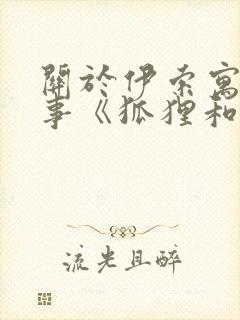 關於伊索寓
事《狐狸和
流光且醉